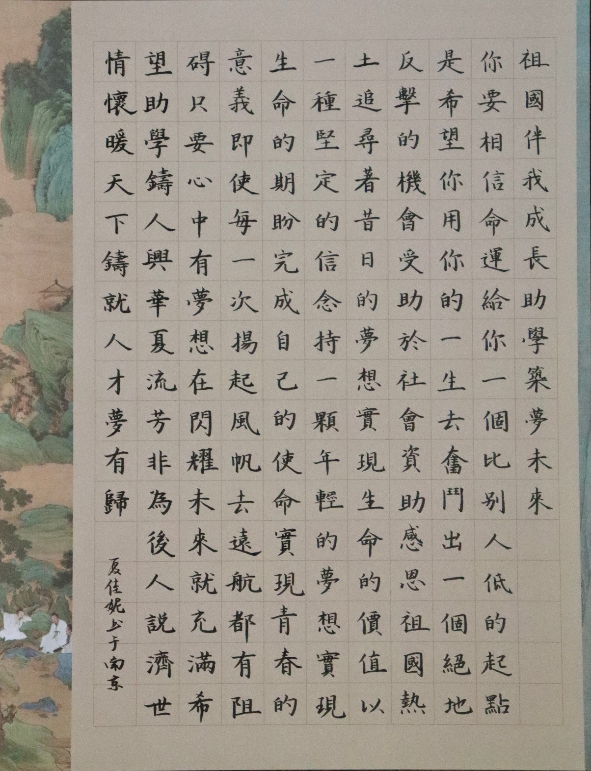 祖國伴我成長助學築夢未來
你要相信命運給你一個比別人低的起點
是希望你用你的一生去奮鬥出一個絕地
反擊的機會受助於社會資助感恩祖國熱
土追尋著昔日的夢想實現生命的價值以
一種堅定的信念持一顆年輕的夢想實現
生命的期盼完成自己的使命實現青春的
意義即使每一次揚起風帆去遠航都有阻
碍只要心中有夢想在閃耀未來就充滿希
望助學鑄人興華夏流芳非為後人説濟世
情懷暖天下鑄就人才夢有歸
夏佳妮书于南京